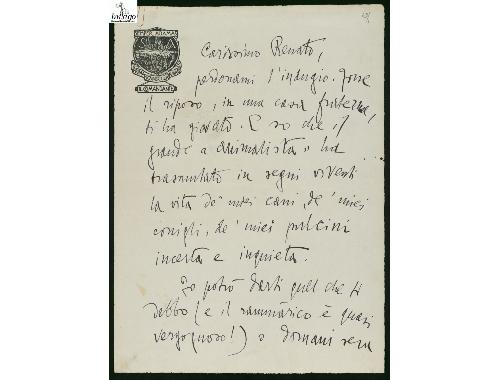 Carissimo Renato,
perdonami l'indugio. Forse
il riposo, in una casa fraterna,
ti ha giovato. E so che il
grande « animalista » ha
trasmutato in segni viventi
la vita de' miei cani, de' miei
conigli, de' miei pulcini
incerta e inquieta.
Io potrò darti quel che ti
debbo (e il rammàrico è quasi
vergognoso!) o domani sera
IL COMANDANTE